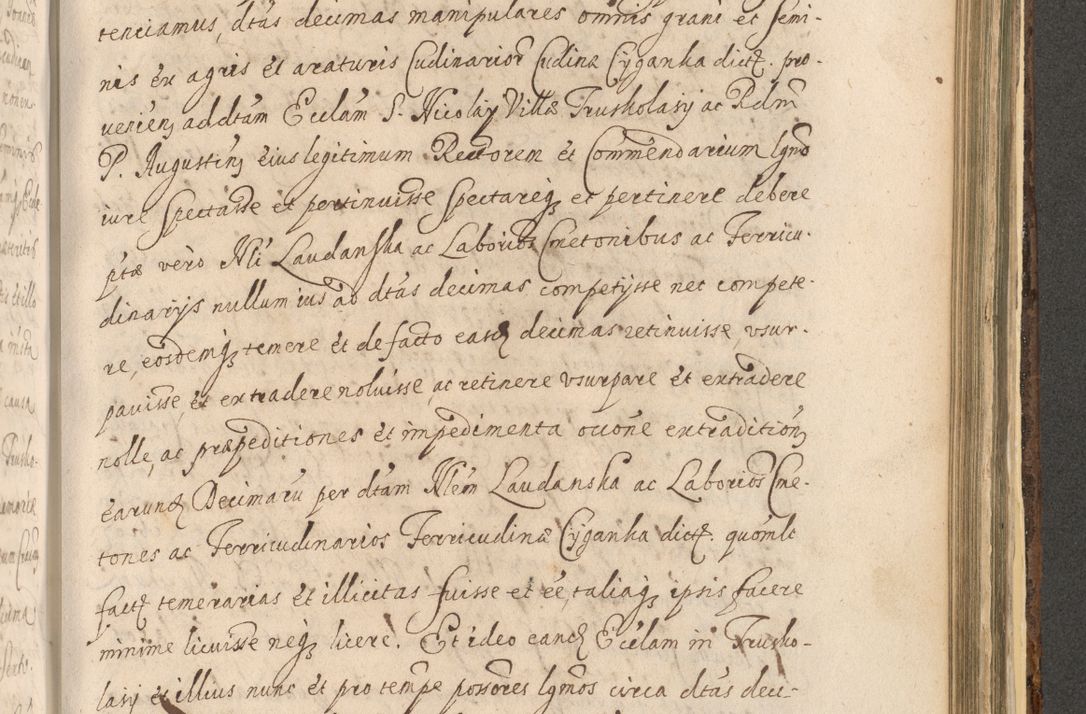 tenciamus, dtas decimas manipulares omnis grani et semi-
nis ex agris et araturis Cudinarior Cudinæ Cyganka dict. pro-
venien ad dtam Ecclam S. Nicolai Villæ Truskolasy ac Rdm
P. Augustin eius legitimum Rectorem et Commendarium lgmo
iure spectasse et pertinuisse spectareq et pertinere debere
ptæ vero Nli Laudanska ac Laborios Cmetonibus ac Ferricu-
dinarijs nullum ius ad dtas decimas competijsse nec compete-
re, eosdemq temere et de facto easd decimas retinuisse, vsur-
pavisse et extradere noluisse, ac retinere vsurpare et extradere
nolle, ac præpeditiones et impedimenta ovone extradition
earund Decimaru per dtam Nlem Laudanska ac Laborios Cme-
tones ac Ferricudinarios Ferricudinæ Cyganka dict. quomlt
fact temerarias et illicitas fuisse et ee, taliaq ipsis facere
minime licuisse neq licere. Et ideo eand Ecclam in Trusko-
lasy et illius nunc et pro tempe possores lgmos circa dtas deci-